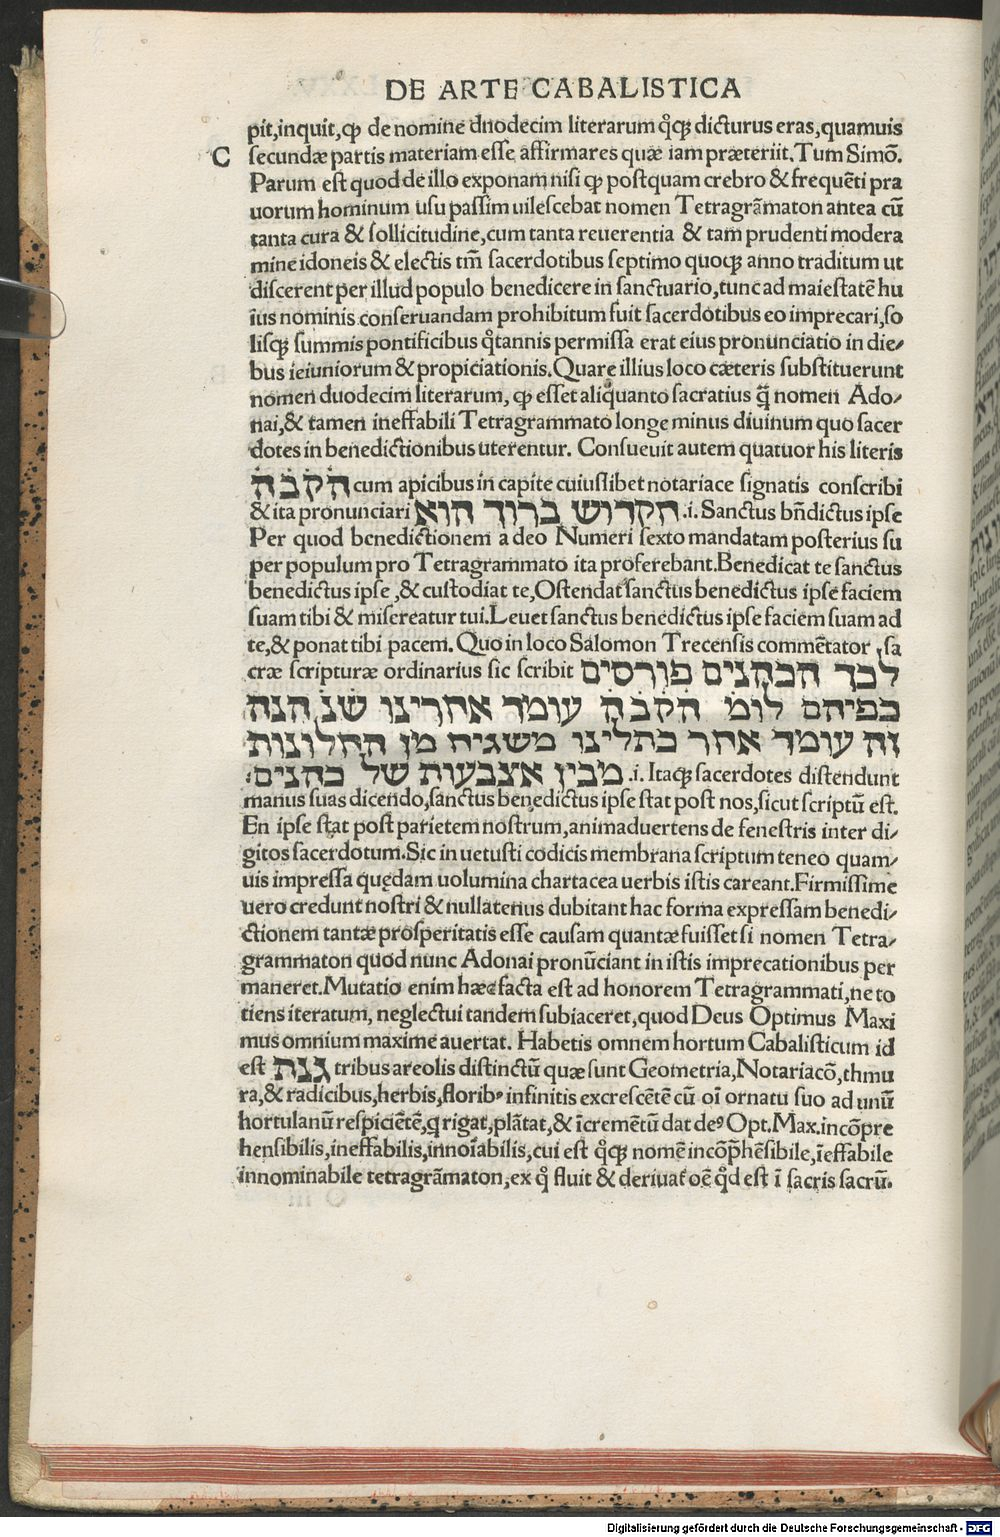 DE ARTE CABALISTICA
pit,inquit,ꝙ de nomine dnodecim literarum q̊qꝫ dicturus eras,quamuis
C secundæ partis materiam esse affirmares quæ iam præteriit.Tum Simō.
Parum est quod de illo exponam nisi ꝙ postquam crebro & frequēti pra
uorum hominum usu passim uilescebat nomen Tetragrãmaton antea cũ
tanta cura & sollicitudine,cum tanta reuerentia & tam prudenti modera
mine idoneis & electis tm̃ sacerdotibus septimo quoqꝫ anno traditum ut
discerent per illud populo benedicere in sanctuario,tunc ad maiestatē hu
ius nominis conseruandam prohibitum fuit sacerdotibus eo imprecari,so
lisqꝫ summis pontificibus q̊tannis permissa erat eius pronunciatio in die⸗
bus ieiuniorum & propiciationis.Quare illius loco cæteris substituerunt
nomen duodecim literarum, ꝙ esset aliquanto sacratius q̃ nomen Ado⸗
nai,& tamen ineffabili Tetragrammato longe minus diuinum quo sacer
dotes in benedictionibus uterentur. Consueuit autem quatuor his literis
הׄקׄבׄהׄ cum apicibus in capite cuiuslibet notariace signatis conscribi
& ita pronunciari הקדוש ברוך הוא .i. Sanctus bñdictus ipse
Per quod benedictionem a deo Numeri sexto mandatam posterius su
per populum pro Tetragrammato ita proferebant.Benedicat te sanctus
benedictus ipse ,& custodiat te,Ostendat sanctus benedictus ipse faciem
suam tibi & misereatur tui.Leuet sanctus benedictus ipse faciem suam ad
te,& ponat tibi pacem. Quo in loco Salomon Trecensis commētator sa
cræ scripturæ ordinarius sic scribit לכך הכהנים פורסים
כפיהם לומׄ הׄקׄבׄהׄ עומד אחרינו שנׄ הנה
זה עומד אחר כתלינו משגיח מן החלונות
מבין אצבעות של כהנים: .i. Itaqꝫ sacerdotes distendunt
manus suas dicendo,sanctus benedictus ipse stat post nos,sicut scriptũ est.
En ipse stat post parietem nostrum,animaduertens de fenestris inter di⸗
gitos sacerdotum.Sic in uetusti codicis membrana scriptum teneo quam⸗
uis impressa quędam uolumina chartacea uerbis istis careant.Firmissime
uero credunt nostri & nullatenus dubitant hac forma expressam benedi⸗
ctionem tantæ prosperitatis esse causam quantæ fuisset si nomen Tetra⸗
grammaton quod nunc Adonai pronũciant in istis imprecationibus per
maneret.Mutatio enim hæc facta est ad honorem Tetragrammati,ne to
tiens iteratum, neglectui tandem subiaceret,quod Deus Optimus Maxi
mus omnium maxime auertat. Habetis omnem hortum Cabalisticum id
est גנת tribus areolis distinctũ quæ sunt Geometria,Notariacō,thmu
ra,& radicibus,herbis,floribꝰ infinitis excrescētē cũ oī ornatu suo ad unũ
hortulanũ respiciētē,q rigat,plãtat,& īcremētũ dat deꝰ Opt.Max.incōpre
hensibilis,ineffabilis,innoīabilis,cui est q̊qꝫ nomē incōp̃hēsibile,īeffabile
innominabile tetragrãmaton,ex q̊ fluit & deriuat oē q̊d est ī sacris sacrũ.
Digitalisierung gefördert durch die Deutsche Forschungsgemeinschaft - DFG